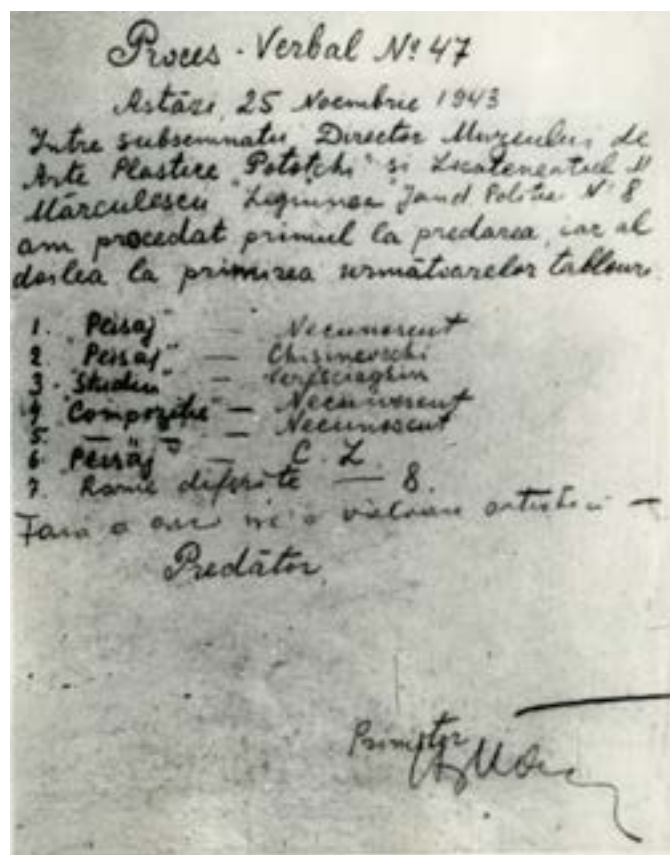 Proces-Verbal Nº 47
Astăzi, 25 Noembrie 1943
Între subsemnatii Director Muzeului de
Arte Plastice "Pototchi" si Locatenentul M
Mărculescu "Legiunea" Jand. Politie Nº 8
am procedat primul la predarea, iar al
doilea la primirea următoarelor tablouri
1. "Peisaj" — Necunoscut
2 "Peisaj" — Chisinevschi
3. "Studiu" — Veresciaghin
4 "Compoziție" — Necunoscut
5. — " — — Necunoscut
6 "Peisaj" — C. L.
7. Rame diferite — 8.
Fara a avea nici o valoare artistica —
Predător
Primitor